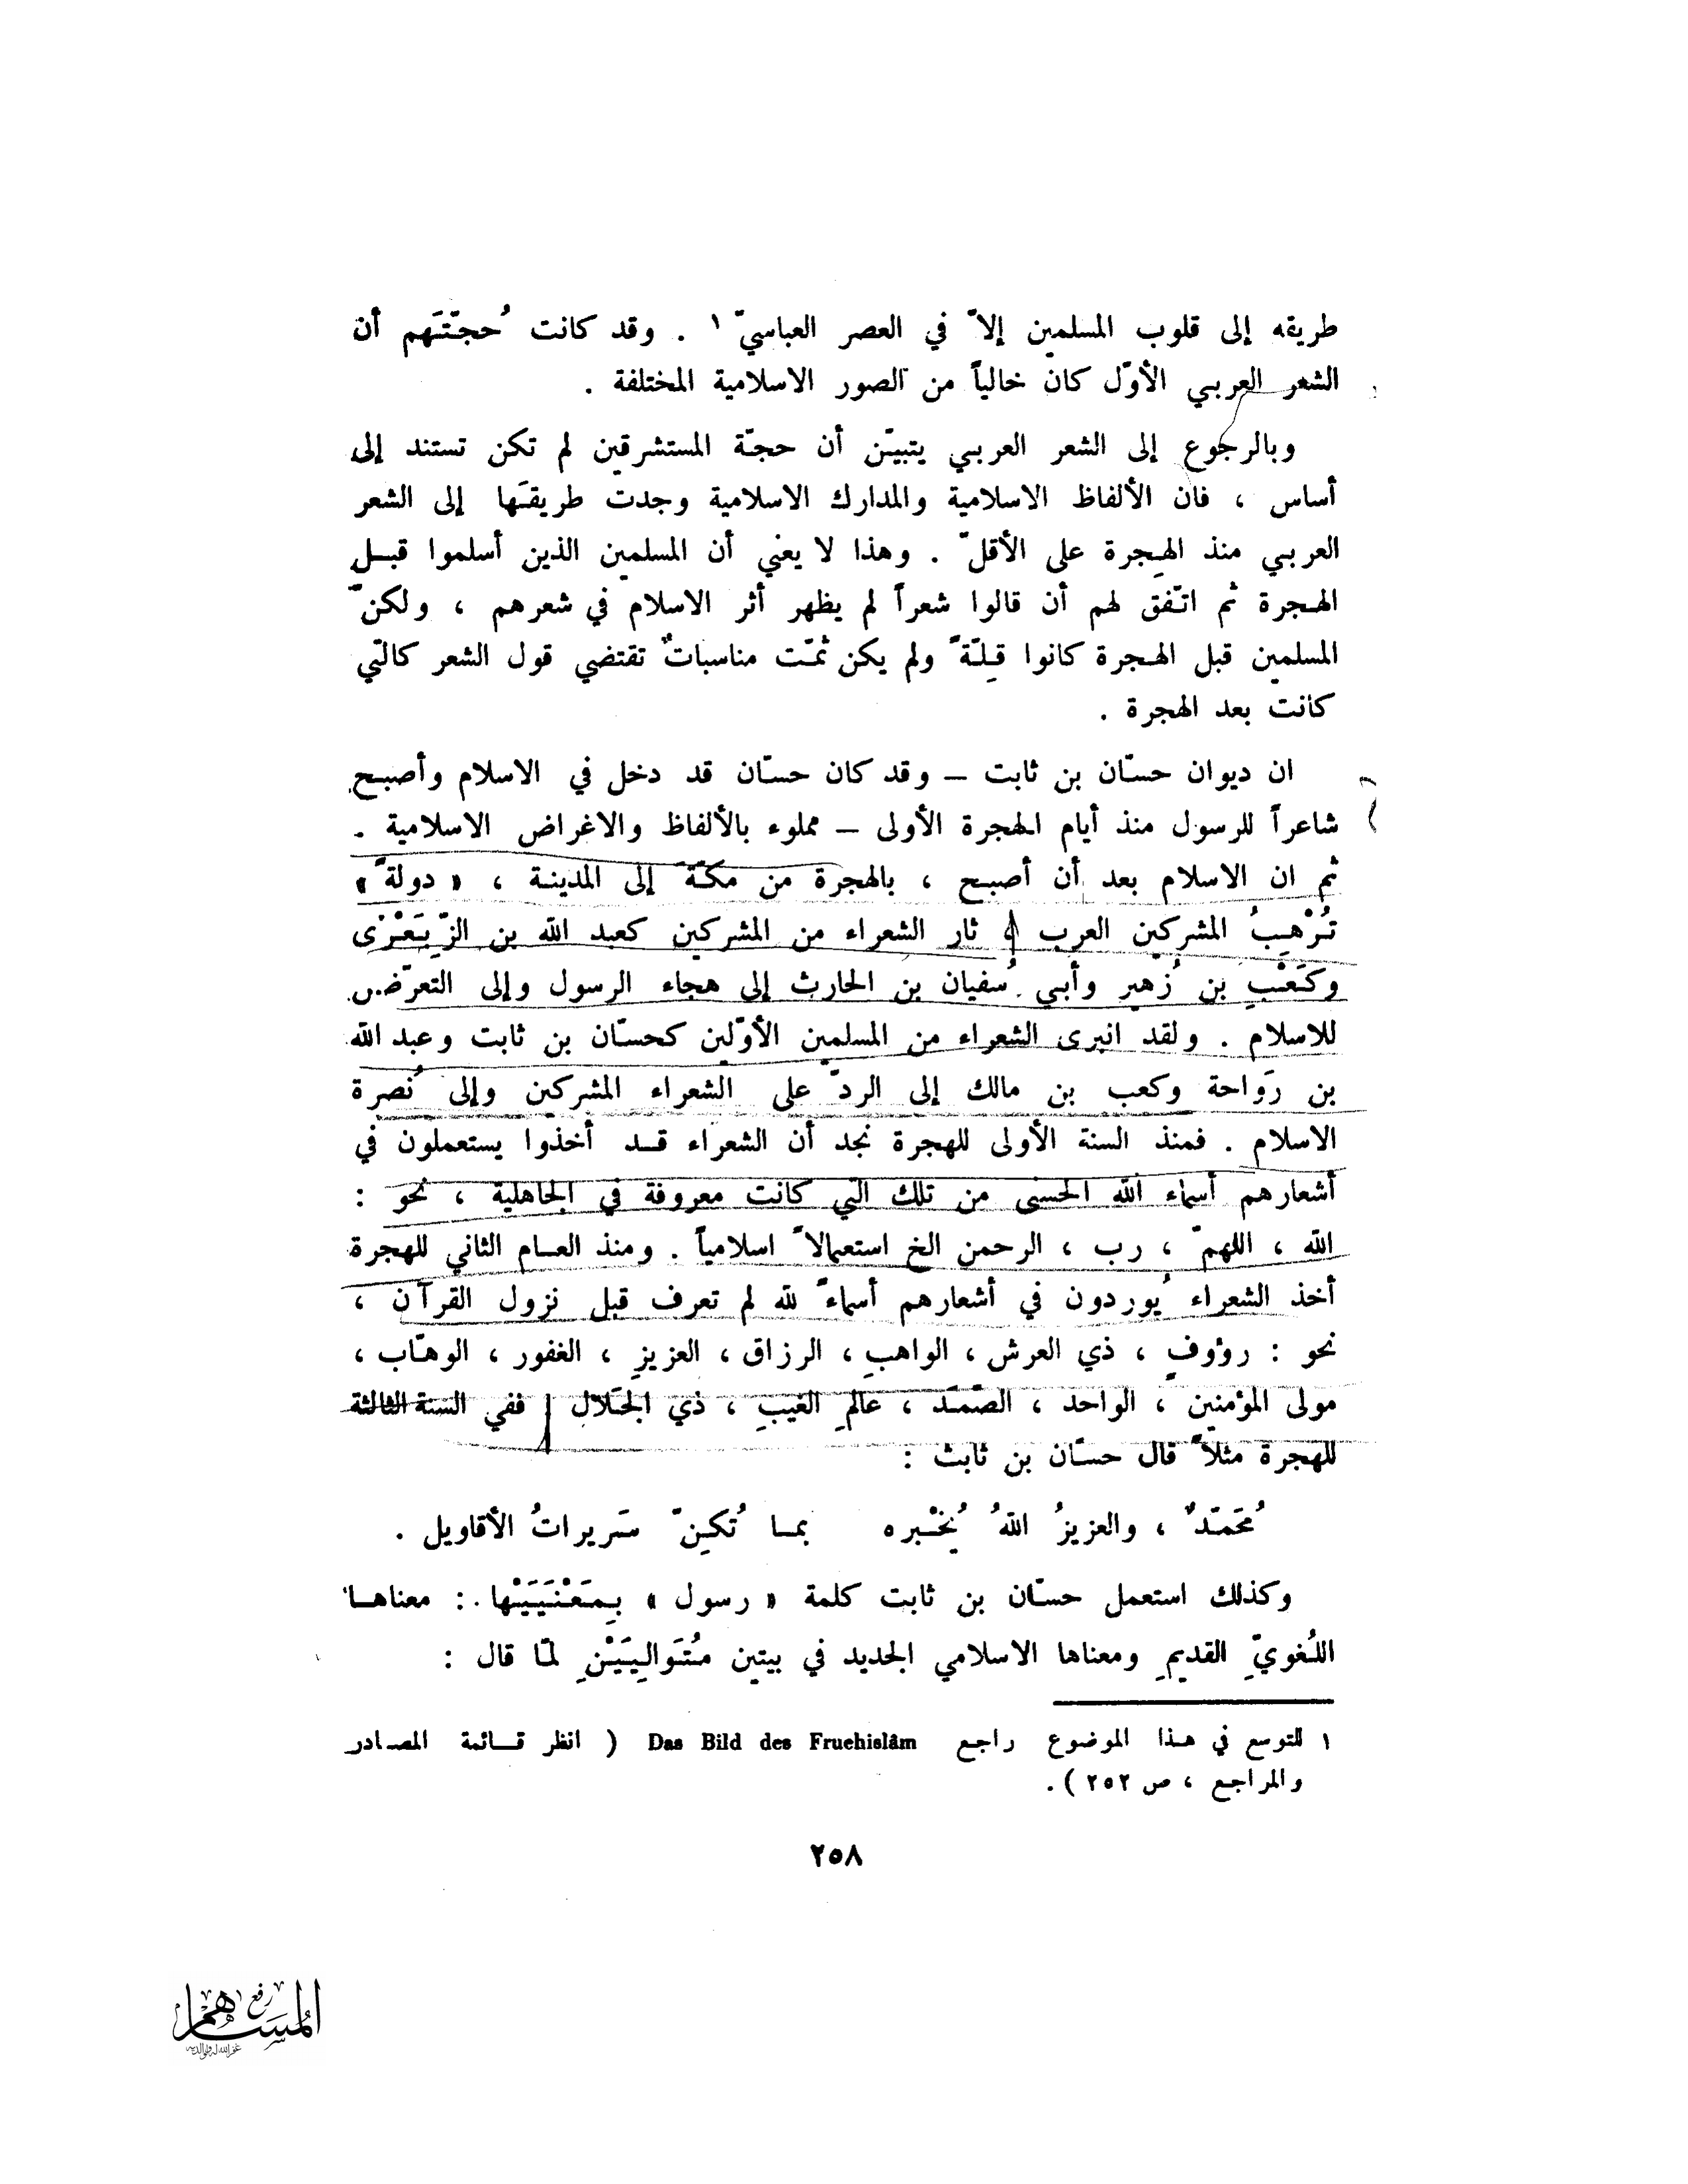 طريقه إلى قلوب المسلمين إلاّ في العصر العباسيّ ١ . وقد كانت حُجّتَهم أن
الشعر العربي الأوّل كان خالياً من الصور الاسلامية المختلفة .
وبالرجوع إلى الشعر العربي يتبيّن أن حجّة المستشرقين لم تكن تستند إلى
أساس ، فان الألفاظ الاسلامية والمدارك الاسلامية وجدت طريقَها إلى الشعر
العربي منذ الهِجرة على الأقلّ . وهذا لا يعني أن المسلمين الذين أسلموا قبل
الهجرة ثم اتّفق لهم أن قالوا شعراً لم يظهر أثر الاسلام في شعرهم ، ولكنّ
المسلمين قبل الهجرة كانوا قِلّةً ولم يكن ثمّت مناسباتٌ تقتضي قول الشعر كالتي
كانت بعد الهجرة .
ان ديوان حسّان بن ثابت – وقد كان حسّان قد دخل في الاسلام وأصبح
شاعراً للرسول منذ أيام الهجرة الأولى – مملوء بالألفاظ والاغراض الاسلامية .
ثم ان الاسلام بعد أن أصبح ، بالهجرة من مكّةَ إلى المدينة ، « دولةً »
تُرْهِبُ المشركين العرب ، ثار الشعراء من المشركين كعبد الله بن الزِّبَعْرَى
وكَعْبِ بن زُهير وأبي سُفيان بن الحارث إلى هجاء الرسول وإلى التعرّض
للاسلام . ولقد انبرى الشعراء من المسلمين الأوّلين كحسّان بن ثابت وعبد الله
بن رَواحة وكعب بن مالك إلى الردّ على الشعراء المشركين وإلى نُصرة
الاسلام . فمنذ السنة الأولى للهجرة نجد أن الشعراء قد أخذوا يستعملون في
أشعارهم أسماء الله الحسنى من تلك التي كانت معروفة في الجاهلية ، نحو :
الله ، اللهمّ ، رب ، الرحمن الخ استعمالاً اسلامياً . ومنذ العام الثاني للهجرة
أخذ الشعراء يُوردون في أشعارهم أسماءً لله لم تعرف قبل نزول القرآن ،
نحو : رؤوفٍ ، ذي العرش ، الواهبِ ، الرزاق ، العزيزِ ، الغفور ، الوهّاب ،
مولى المؤمنين ، الواحد ، الصّمَد ، عالمِ الغيبِ ، ذي الجَلال . ففي السنة الثالثة
للهجرة مثلاً قال حسّان بن ثابث :
مُحَمّدٌ ، والعزيزُ اللهُ يُخْبره    بما تُكِنّ سَريراتُ الأقاويل .
وكذلك استعمل حسّان بن ثابت كلمة « رسول » بِمَعْنَيَيْها : معناها
اللُغويِّ القديمِ ومعناها الاسلامي الجديد في بيتين مُتَوالِيَيْنِ لمّا قال :
١ للتوسع في هذا الموضوع راجع Das Bild des Fruehislâm ( انظر قائمة المصادر
والمراجع ، ص ٢٥٢ ) .
٢٥٨
رفع
المساهم
غفر الله له ولوالديه